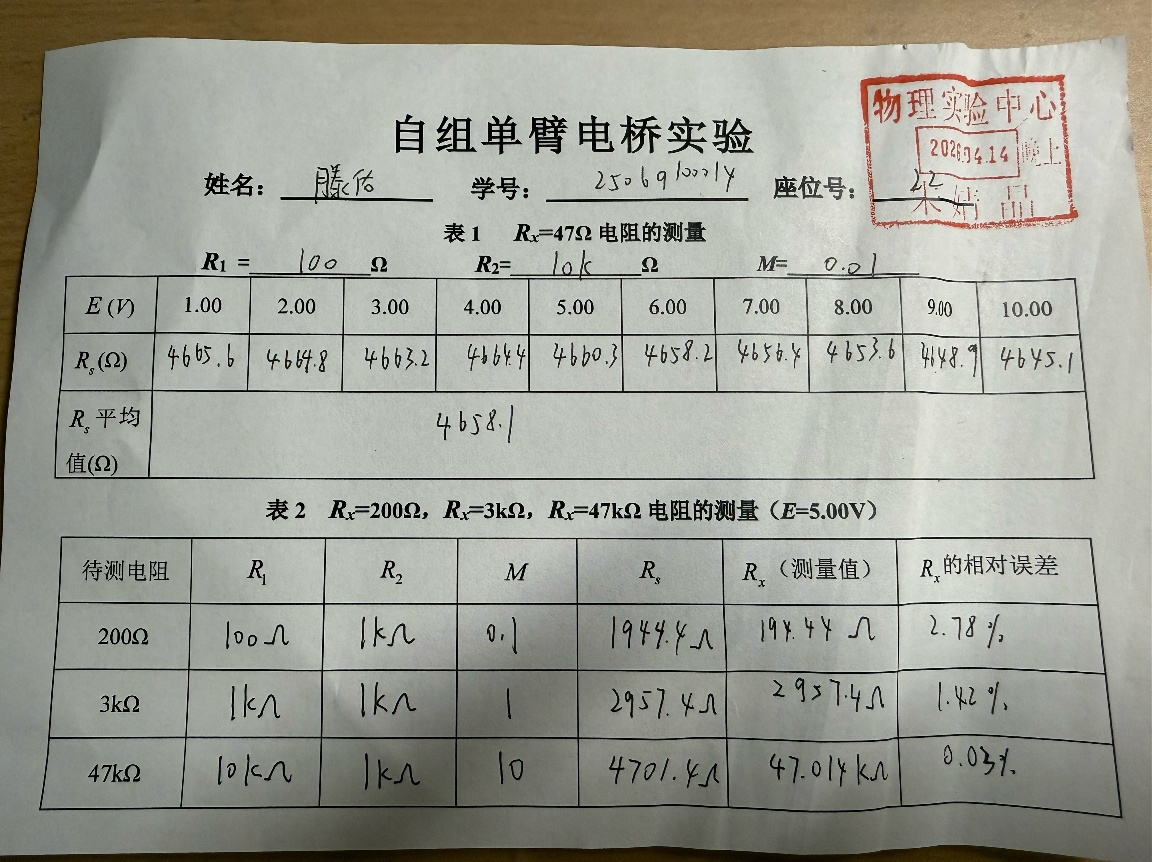 物理实验中心
2026.04.14 晚上
自组单臂电桥实验
姓名: 滕佑 学号: 2506910014 座位号: 22
表 1 Rx=47Ω 电阻的测量
R1 = 100 Ω R2= 10k Ω M= 0.01
E (V) 1.00 2.00 3.00 4.00 5.00 6.00 7.00 8.00 9.00 10.00
Rs(Ω) 4665.6 4664.8 4663.2 4664.4 4660.3 4658.2 4656.4 4653.6 4648.9 4645.1
Rs 平均值(Ω) 4658.1
表 2 Rx=200Ω，Rx=3kΩ，Rx=47kΩ 电阻的测量（E=5.00V）
待测电阻 R1 R2 M Rs Rx（测量值） Rx的相对误差
200Ω 100Ω 1kΩ 0.1 1944.4Ω 194.44 Ω 2.78%
3kΩ 1kΩ 1kΩ 1 2957.4Ω 2957.4Ω 1.42%
47kΩ 10kΩ 1kΩ 10 4701.4Ω 47.014 kΩ 0.03%